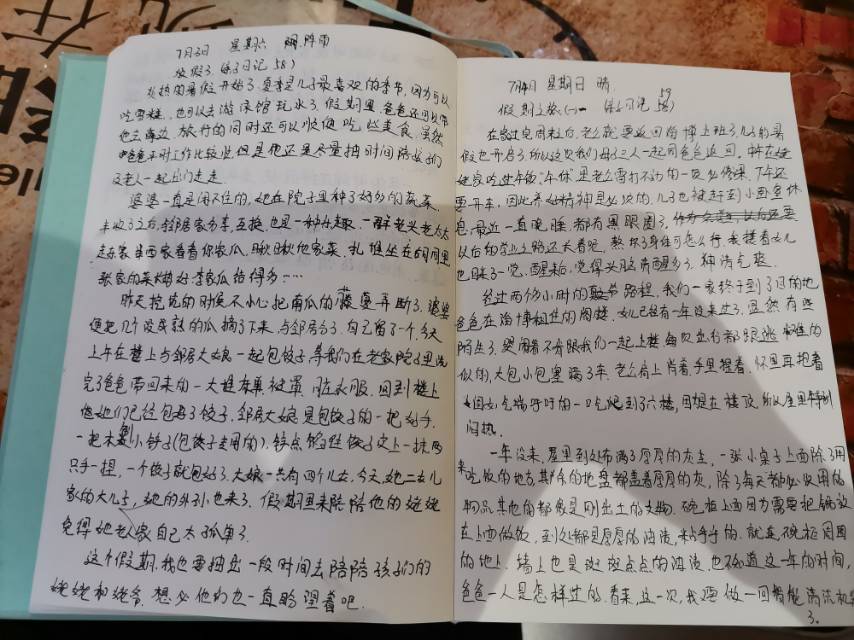 7月3日 星期六 晴,阵雨
放假了(亲子日记 58)
炎热的暑假开始了,夏季是儿子最喜欢的季节,因为可以
吃雪糕,也可以去游泳馆玩水了,假期里,爸爸还可以带
他去海边,旅行的同时还可以顺便吃些美食,虽然
爸爸平时工作比较忙,但是他还是尽量抽时间陪我们
及老人一起出门走走。
婆婆一直是闲不住的,她在院子里种了好多的蔬菜,
丰收了之后,邻居家分享,互换,也是一种乐趣,一群老头老太太
走东家串西家看看你家瓜,瞅瞅他家菜,扎堆坐在胡同里
张家的菜大李家瓜结得多……
昨天挖苋的时候不小心把南瓜的藤蔓弄断了,婆婆
便把几个没成熟的瓜摘了下来,与邻居分了,自己留了一个,今天
上午在楼上与邻居大娘一起包饺子,等我们在老家院子里洗
完了爸爸带回来的一大堆床单被罩,脏衣服,回到楼上
他她们已经包好了饺子,邻居大娘是包饺子的一把好手,
一把木制小铲子(包饺子专用的),铲点馅子往饺子皮上一抹,两
只手一捏,一个饺子就包好了,大娘一共有四个儿女,今天,她二女儿
家的大儿子,她的外孙也来了,假期里来陪陪他的姥姥
觉得她老人家自己太孤单了。
这个假期,我也要抽出一段时间去陪陪孩子们的
姥姥和姥爷,想必他们也一直盼望着吧。
7月4日 星期日 晴
59
假期之旅(一) 亲子日记 58)
在家过完周末后,老公就要返回淄博上班了,儿子的暑
假也开启了,所以这次我们母子三人一起同爸爸返回,中午在姥
姥家吃过午饭,"午休"里老公雷打不动的一项必修课,下午还
要开车,因此养好精神是必须的,儿子也被赶到小卧室休
息,最近一直晚睡,都有黑眼圈了,
以后的学业之路还长着呢,熬坏了身体可怎么行,我搂着女儿
也睡了一觉,醒来后,觉得头脑清醒多了,神清气爽
经过两个多小时的路程,我们一家终于到了目的地
爸爸在淄博租住的阁楼,女儿已经有一年没来过了,显然有些
陌生了,哭闹着不肯跟我们一起上楼,每次出行都跟逃难
似的,大包小包塞满了车,老公肩上背着,手里提着,怀里再抱着
女儿,气喘吁吁的一口气爬到了六楼,因为在楼顶,所以屋里特别
闷热。
一年没来,屋里到处布满了厚厚的灰土,一张小桌子上面除了用
来吃饭的地方,其余的地盘都盖着厚厚的灰,除了每天都必须用的
物品,其他的都像是刚出土的文物,碗柜上面因为需要把锅放
在上面做饭,到处都是厚厚的油渍,粘粘手的,就连碗柜周围
的地上,墙上也是斑斑点点的油渍,也不知道这一年的时间,
爸爸一人是怎样过的,看来,这一次,我要做一回智能清洗机
了。